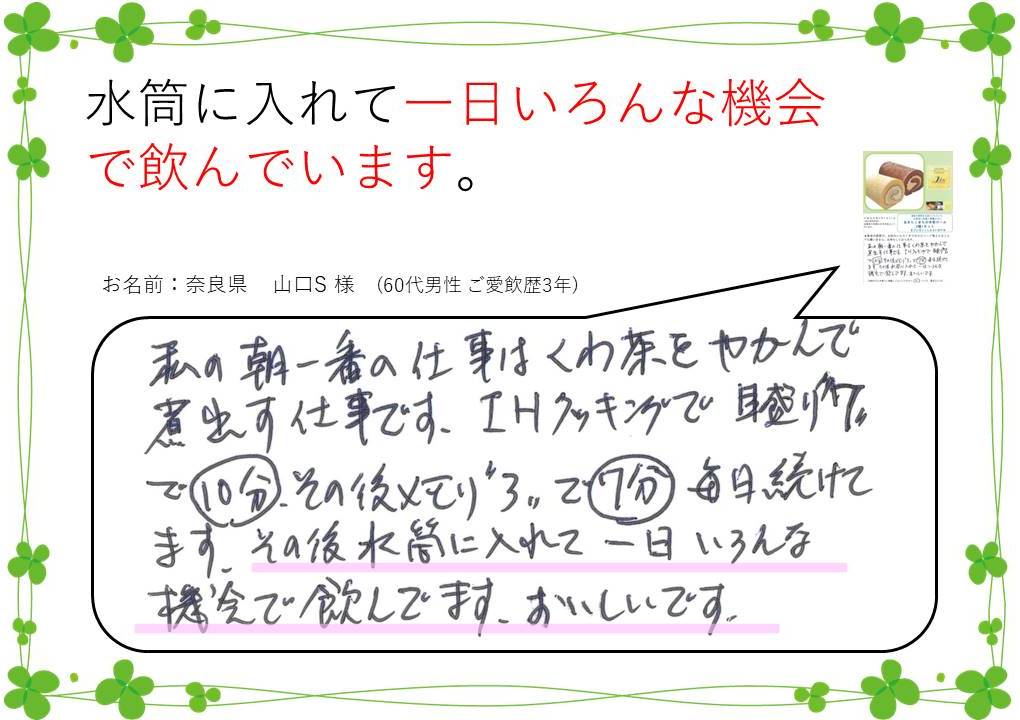 水筒に入れて一日いろんな機会
で飲んでいます。
お名前：奈良県　山口S 様　(60代男性 ご愛飲歴3年)
私の朝一番の仕事はくわ茶をやかんで
煮出す仕事です、IHクッキングで目盛り
で10分、その後メモリ"3"で7分 毎日続けて
ます、その後水筒に入れて一日いろんな
機会で飲んでます、おいしいです、